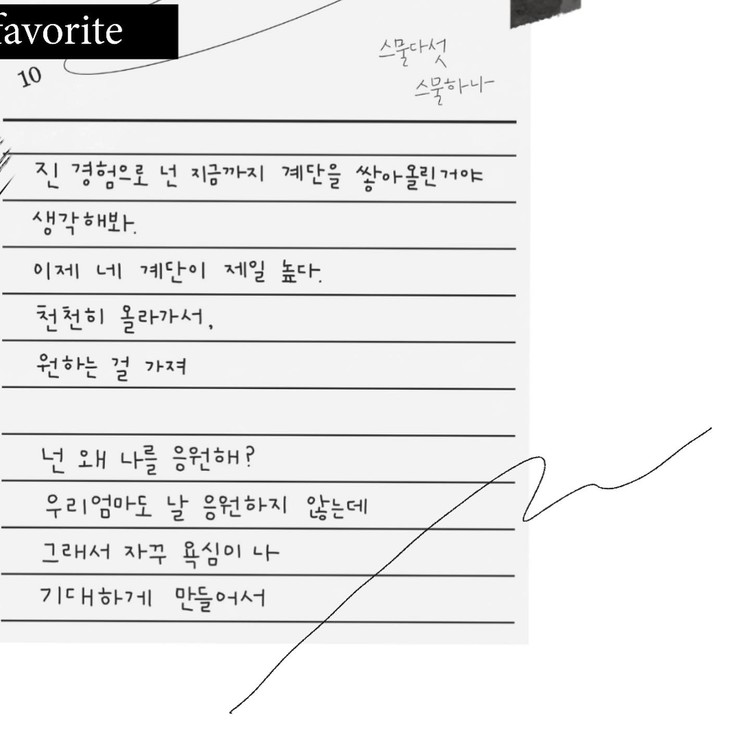 favorite
10
스물다섯
스물하나
진 경험으로 넌 지금까지 계단을 쌓아올린거야
생각해봐.
이제 네 계단이 제일 높다.
천천히 올라가서,
원하는 걸 가져
넌 왜 나를 응원해?
우리엄마도 날 응원하지 않는데
그래서 자꾸 욕심이 나
기대하게 만들어서